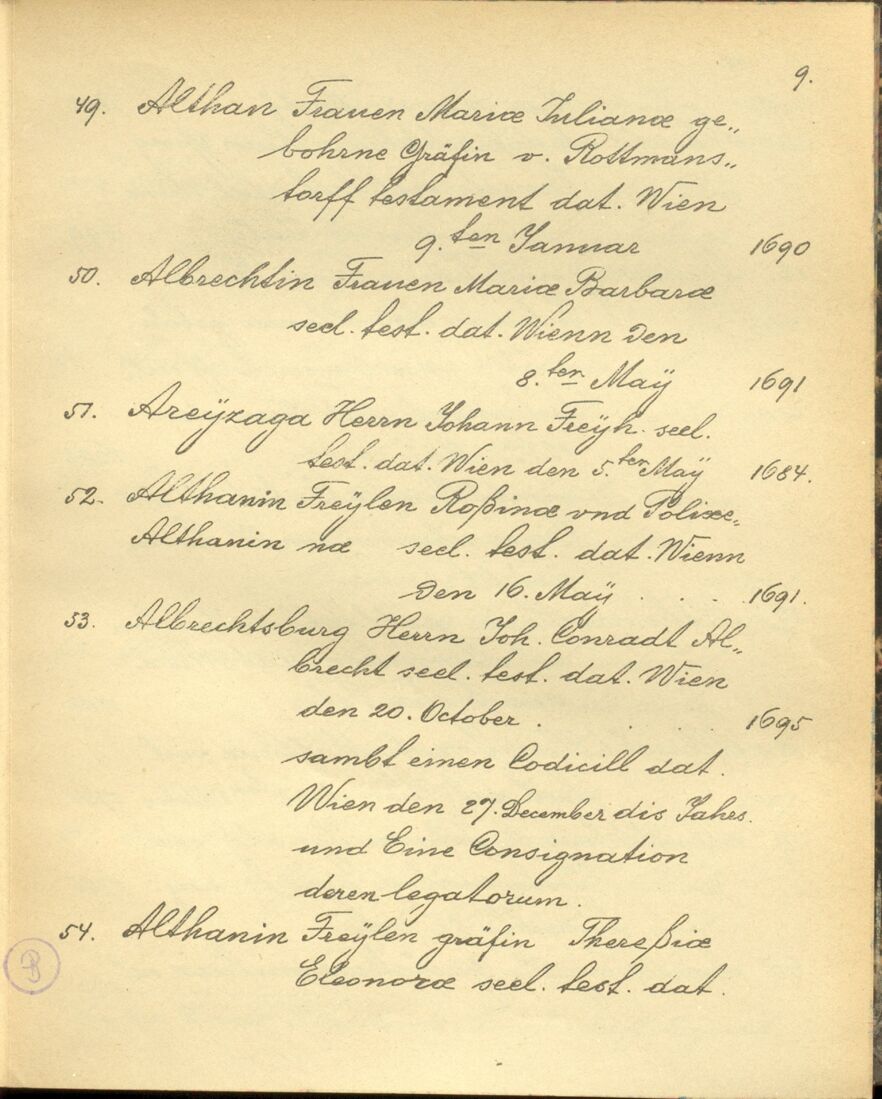 9.
49. Althan Frauen Mariæ Julianæ ge„
bohrne Gräfin v. Rottmans„
torff testament dat. Wien
9.ten Januar 1690
50. Albrechtin Frauen Mariæ Barbaræ
seel. test. dat. Wienn den
8.ten Maÿ 1691
51. Areÿzaga Herrn Johann Freÿh. seel.
test. dat. Wien den 5.ten Maÿ 1684.
52. Althanin Freÿlen Roßinæ vnd Polixe„
Althanin næ seel. test. dat. Wienn
den 16. Maÿ . . . 1691.
53. Albrechtsburg Herrn Joh. Conradt Al„
brecht seel. test. dat. Wien
den 20. October . . . . 1695
sambt einen Codicill dat.
Wien den 27. December dis Jahrs.
und Eine Consignation
deren legatorum.
54. Althanin Freÿlen gräfin Thereßiæ
Eleonoræ seel. test. dat.